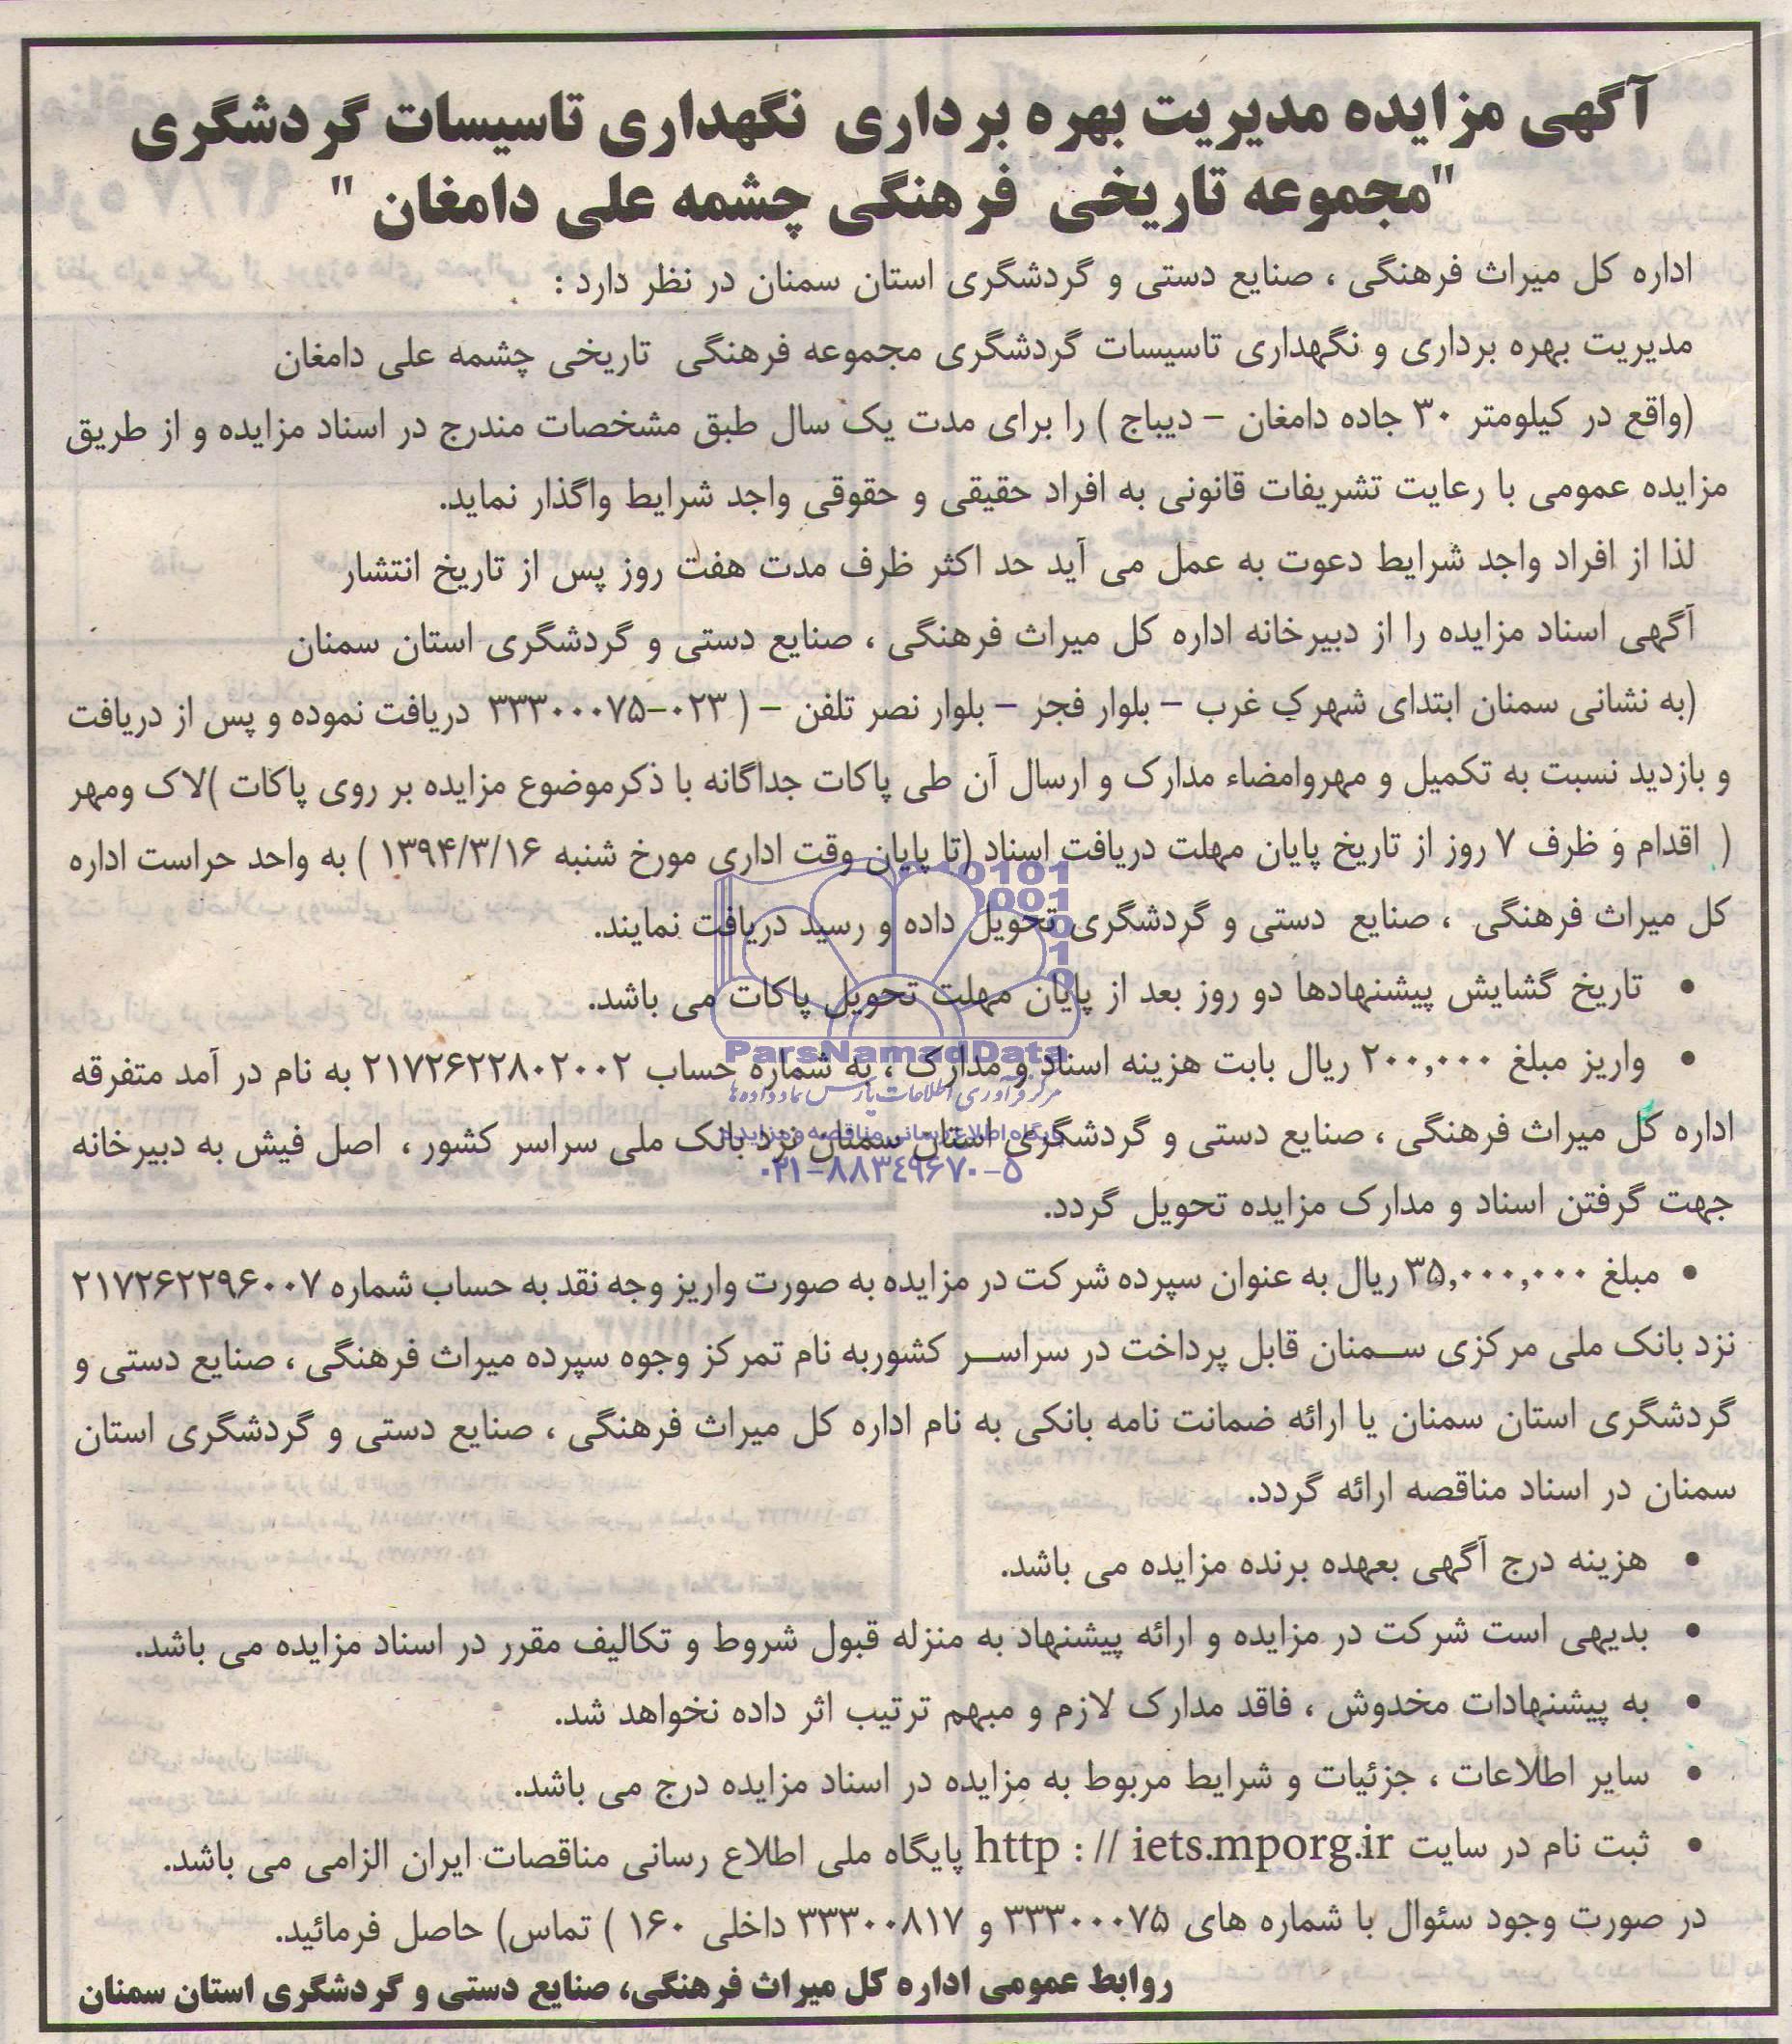 آگهی مزایده مدیریت بهره برداری نگهداری تاسیسات گردشگری
"مجموعه تاریخی فرهنگی چشمه علی دامغان "
اداره کل میراث فرهنگی ، صنایع دستی و گردشگری استان سمنان در نظر دارد :
مدیریت بهره برداری و نگهداری تاسیسات گردشگری مجموعه فرهنگی تاریخی چشمه علی دامغان
(واقع در کیلومتر ۳۰ جاده دامغان – دیباج ) را برای مدت یک سال طبق مشخصات مندرج در اسناد مزایده و از طریق
مزایده عمومی با رعایت تشریفات قانونی به افراد حقیقی و حقوقی واجد شرایط واگذار نماید.
لذا از افراد واجد شرایط دعوت به عمل می آید حد اکثر ظرف مدت هفت روز پس از تاریخ انتشار
آگهی اسناد مزایده را از دبیرخانه اداره کل میراث فرهنگی ، صنایع دستی و گردشگری استان سمنان
(به نشانی سمنان ابتدای شهرک غرب – بلوار فجر – بلوار نصر تلفن – ( ۰۲۳-۳۳۳۰۰۰۷۵ دریافت نموده و پس از دریافت
و بازدید نسبت به تکمیل و مهروامضاء مدارک و ارسال آن طی پاکات جداگانه با ذکرموضوع مزایده بر روی پاکات )لاک ومهر
( اقدام و ظرف ۷ روز از تاریخ پایان مهلت دریافت اسناد (تا پایان وقت اداری مورخ شنبه ۱۳۹۴/۳/۱۶ ) به واحد حراست اداره
کل میراث فرهنگی ، صنایع دستی و گردشگری تحویل داده و رسید دریافت نمایند.
• تاریخ گشایش پیشنهادها دو روز بعد از پایان مهلت تحویل پاکات می باشد.
ParsNamadData
• واریز مبلغ ۲۰۰,۰۰۰ ریال بابت هزینه اسناد و مدارک ، به شماره حساب ۲۱۷۲۶۲۲۸۰۲۰۰۲ به نام در آمد متفرقه
مرکز فرآوری اطلاعات پارس نماد داده ها
اداره کل میراث فرهنگی ، صنایع دستی و گردشگری استان سمنان نزد بانک ملی سراسر کشور ، اصل فیش به دبیرخانه
۰۲۱-۸۸۳۴۹۶۷۰-۵
جهت گرفتن اسناد و مدارک مزایده تحویل گردد.
• مبلغ ۳۵,۰۰۰,۰۰۰ ریال به عنوان سپرده شرکت در مزایده به صورت واریز وجه نقد به حساب شماره ۲۱۷۲۶۲۲۹۶۰۰۷
نزد بانک ملی مرکزی سمنان قابل پرداخت در سراسر کشوربه نام تمرکز وجوه سپرده میراث فرهنگی ، صنایع دستی و
گردشگری استان سمنان یا ارائه ضمانت نامه بانکی به نام اداره کل میراث فرهنگی ، صنایع دستی و گردشگری استان
سمنان در اسناد مناقصه ارائه گردد.
• هزینه درج آگهی بعهده برنده مزایده می باشد.
• بدیهی است شرکت در مزایده و ارائه پیشنهاد به منزله قبول شروط و تکالیف مقرر در اسناد مزایده می باشد.
• به پیشنهادات مخدوش ، فاقد مدارک لازم و مبهم ترتیب اثر داده نخواهد شد.
• سایر اطلاعات ، جزئیات و شرایط مربوط به مزایده در اسناد مزایده درج می باشد.
• ثبت نام در سایت http : // iets.mporg.ir پایگاه ملی اطلاع رسانی مناقصات ایران الزامی می باشد.
در صورت وجود سئوال با شماره های ۳۳۳۰۰۰۷۵ و ۳۳۳۰۰۸۱۷ داخلی ۱۶۰ ) تماس) حاصل فرمائید.
روابط عمومی اداره کل میراث فرهنگی، صنایع دستی و گردشگری استان سمنان